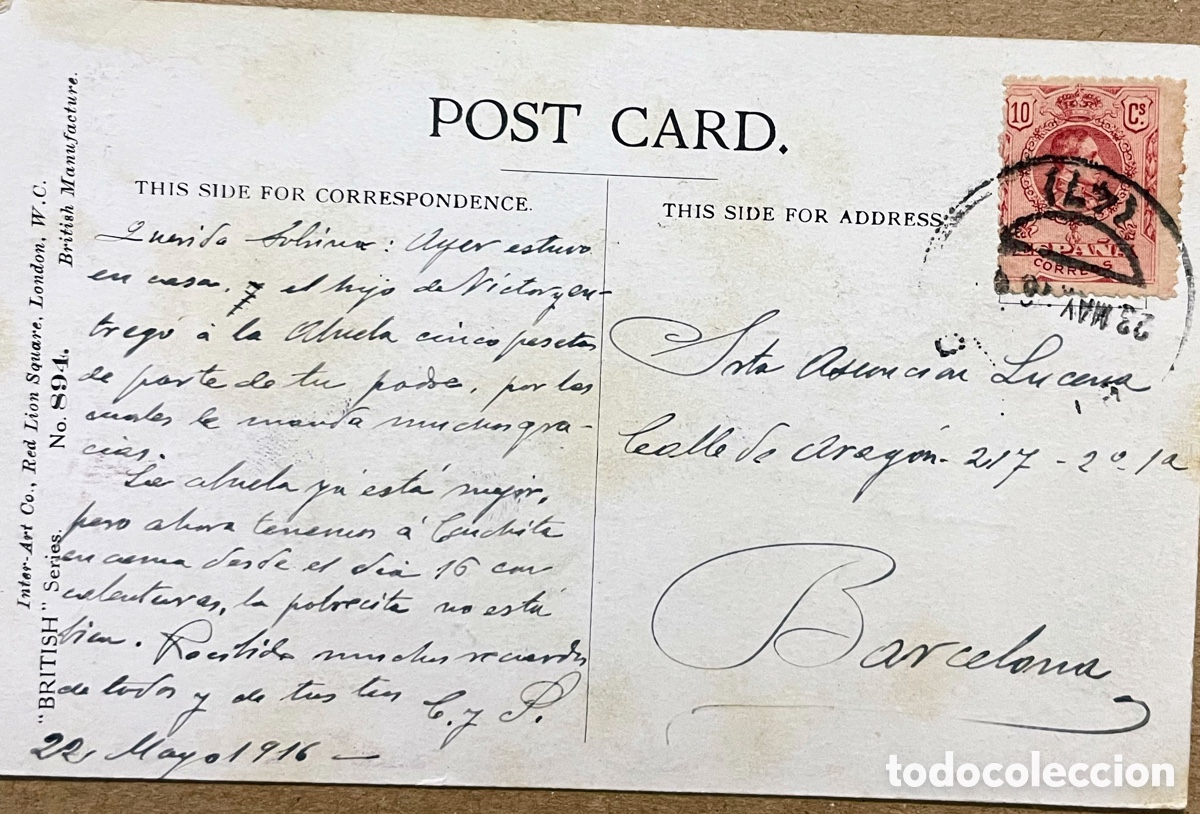 POST CARD.
THIS SIDE FOR CORRESPONDENCE.
THIS SIDE FOR ADDRESS
Inter-Art Co., Red Lion Square, London, W.C.
British Manufacture.
"BRITISH" Series.
No. 894.
Querida Sobrina: Ayer estuvo
en casa, el hijo de Victor y en-
tregó á la Abuela cinco pesetas
de parte de tu padre, por las
cuales le manda muchas gra-
cias.
La abuela ya está mejor,
pero ahora tenemos á Conchita
en cama desde el dia 16 con
calenturas, la pobrecita no está
bien. Recibido muchos recuerdos
de todos y de tus tios
C. y P.
22 Mayo 1916
10 Cs.
ESPAÑA
CORREOS
23 MAY 16
Srta Asuncion Lucena
Calle de Aragón - 217 - 2º - 1ª
Barcelona
todocoleccion